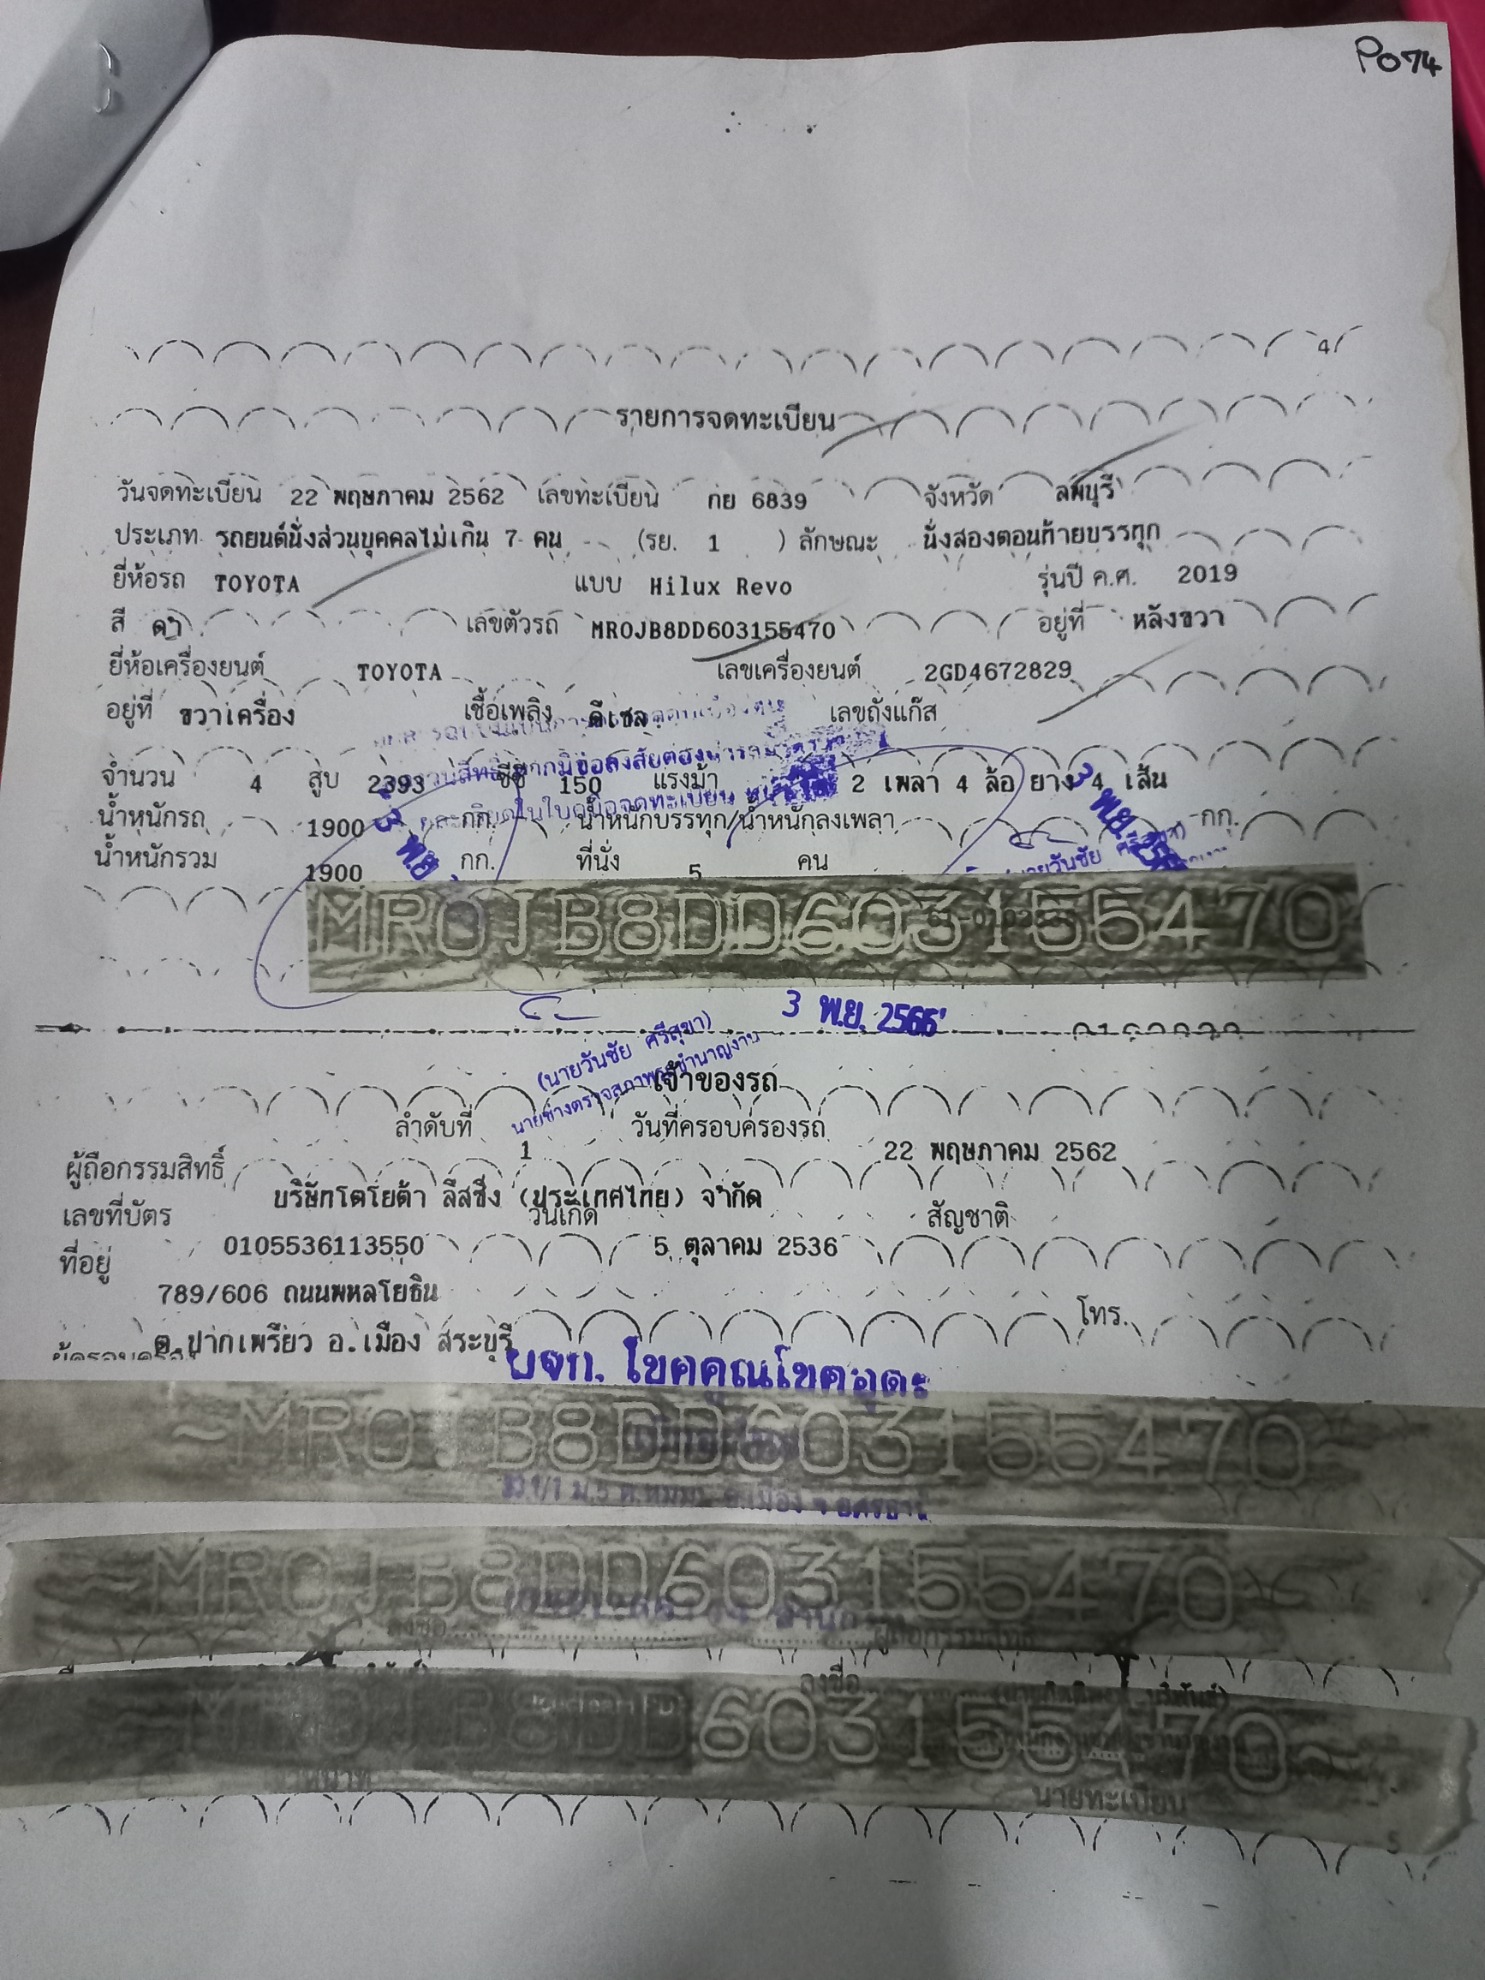 P074
4
รายการจดทะเบียน
วันจดทะเบียน 22 พฤษภาคม 2562 เลขทะเบียน กย 6839 จังหวัด ลพบุรี
ประเภท รถยนต์นั่งส่วนบุคคลไม่เกิน 7 คน (รย. 1 ) ลักษณะ นั่งสองตอนท้ายบรรทุก
ยี่ห้อรถ TOYOTA แบบ Hilux Revo รุ่นปี ค.ศ. 2019
สี ดำ เลขตัวรถ MROJB8DD603155470 อยู่ที่ หลังขวา
ยี่ห้อเครื่องยนต์ TOYOTA เลขเครื่องยนต์ 2GD4672829
อยู่ที่ ขวาเครื่อง เชื้อเพลิง ดีเซล เลขถังแก๊ส
จำนวน 4 สูบ 2393 ซีซี 150 แรงม้า 2 เพลา 4 ล้อ ยาง 4 เส้น
น้ำหนักรถ 1900 กก. น้ำหนักบรรทุก/น้ำหนักลงเพลา กก.
น้ำหนักรวม 1900 กก. ที่นั่ง 5 คน
MROJB8DD603155470
3 พ.ย. 2566
(นายวันชัย ศรีสุขา)
นายช่างตรวจสภาพรถชำนาญงาน
เจ้าของรถ
ลำดับที่ 1 วันที่ครอบครองรถ 22 พฤษภาคม 2562
ผู้ถือกรรมสิทธิ์ บริษัทโตโยต้า ลีสซิ่ง (ประเทศไทย) จำกัด
เลขที่บัตร 0105536113550 วันเกิด 5 ตุลาคม 2536 สัญชาติ
ที่อยู่ 789/606 ถนนพหลโยธิน
ต.ปากเพรียว อ.เมือง สระบุรี โทร.
ผู้ครอบครอง
ผจก. โชคคูณโชค
~MROJB8DD603155470~
~MROJB8DD603155470~
ลงชื่อ ผู้ถือกรรมสิทธิ์
ลงชื่อ
~MROJB8DD603155470~
นายทะเบียน
5